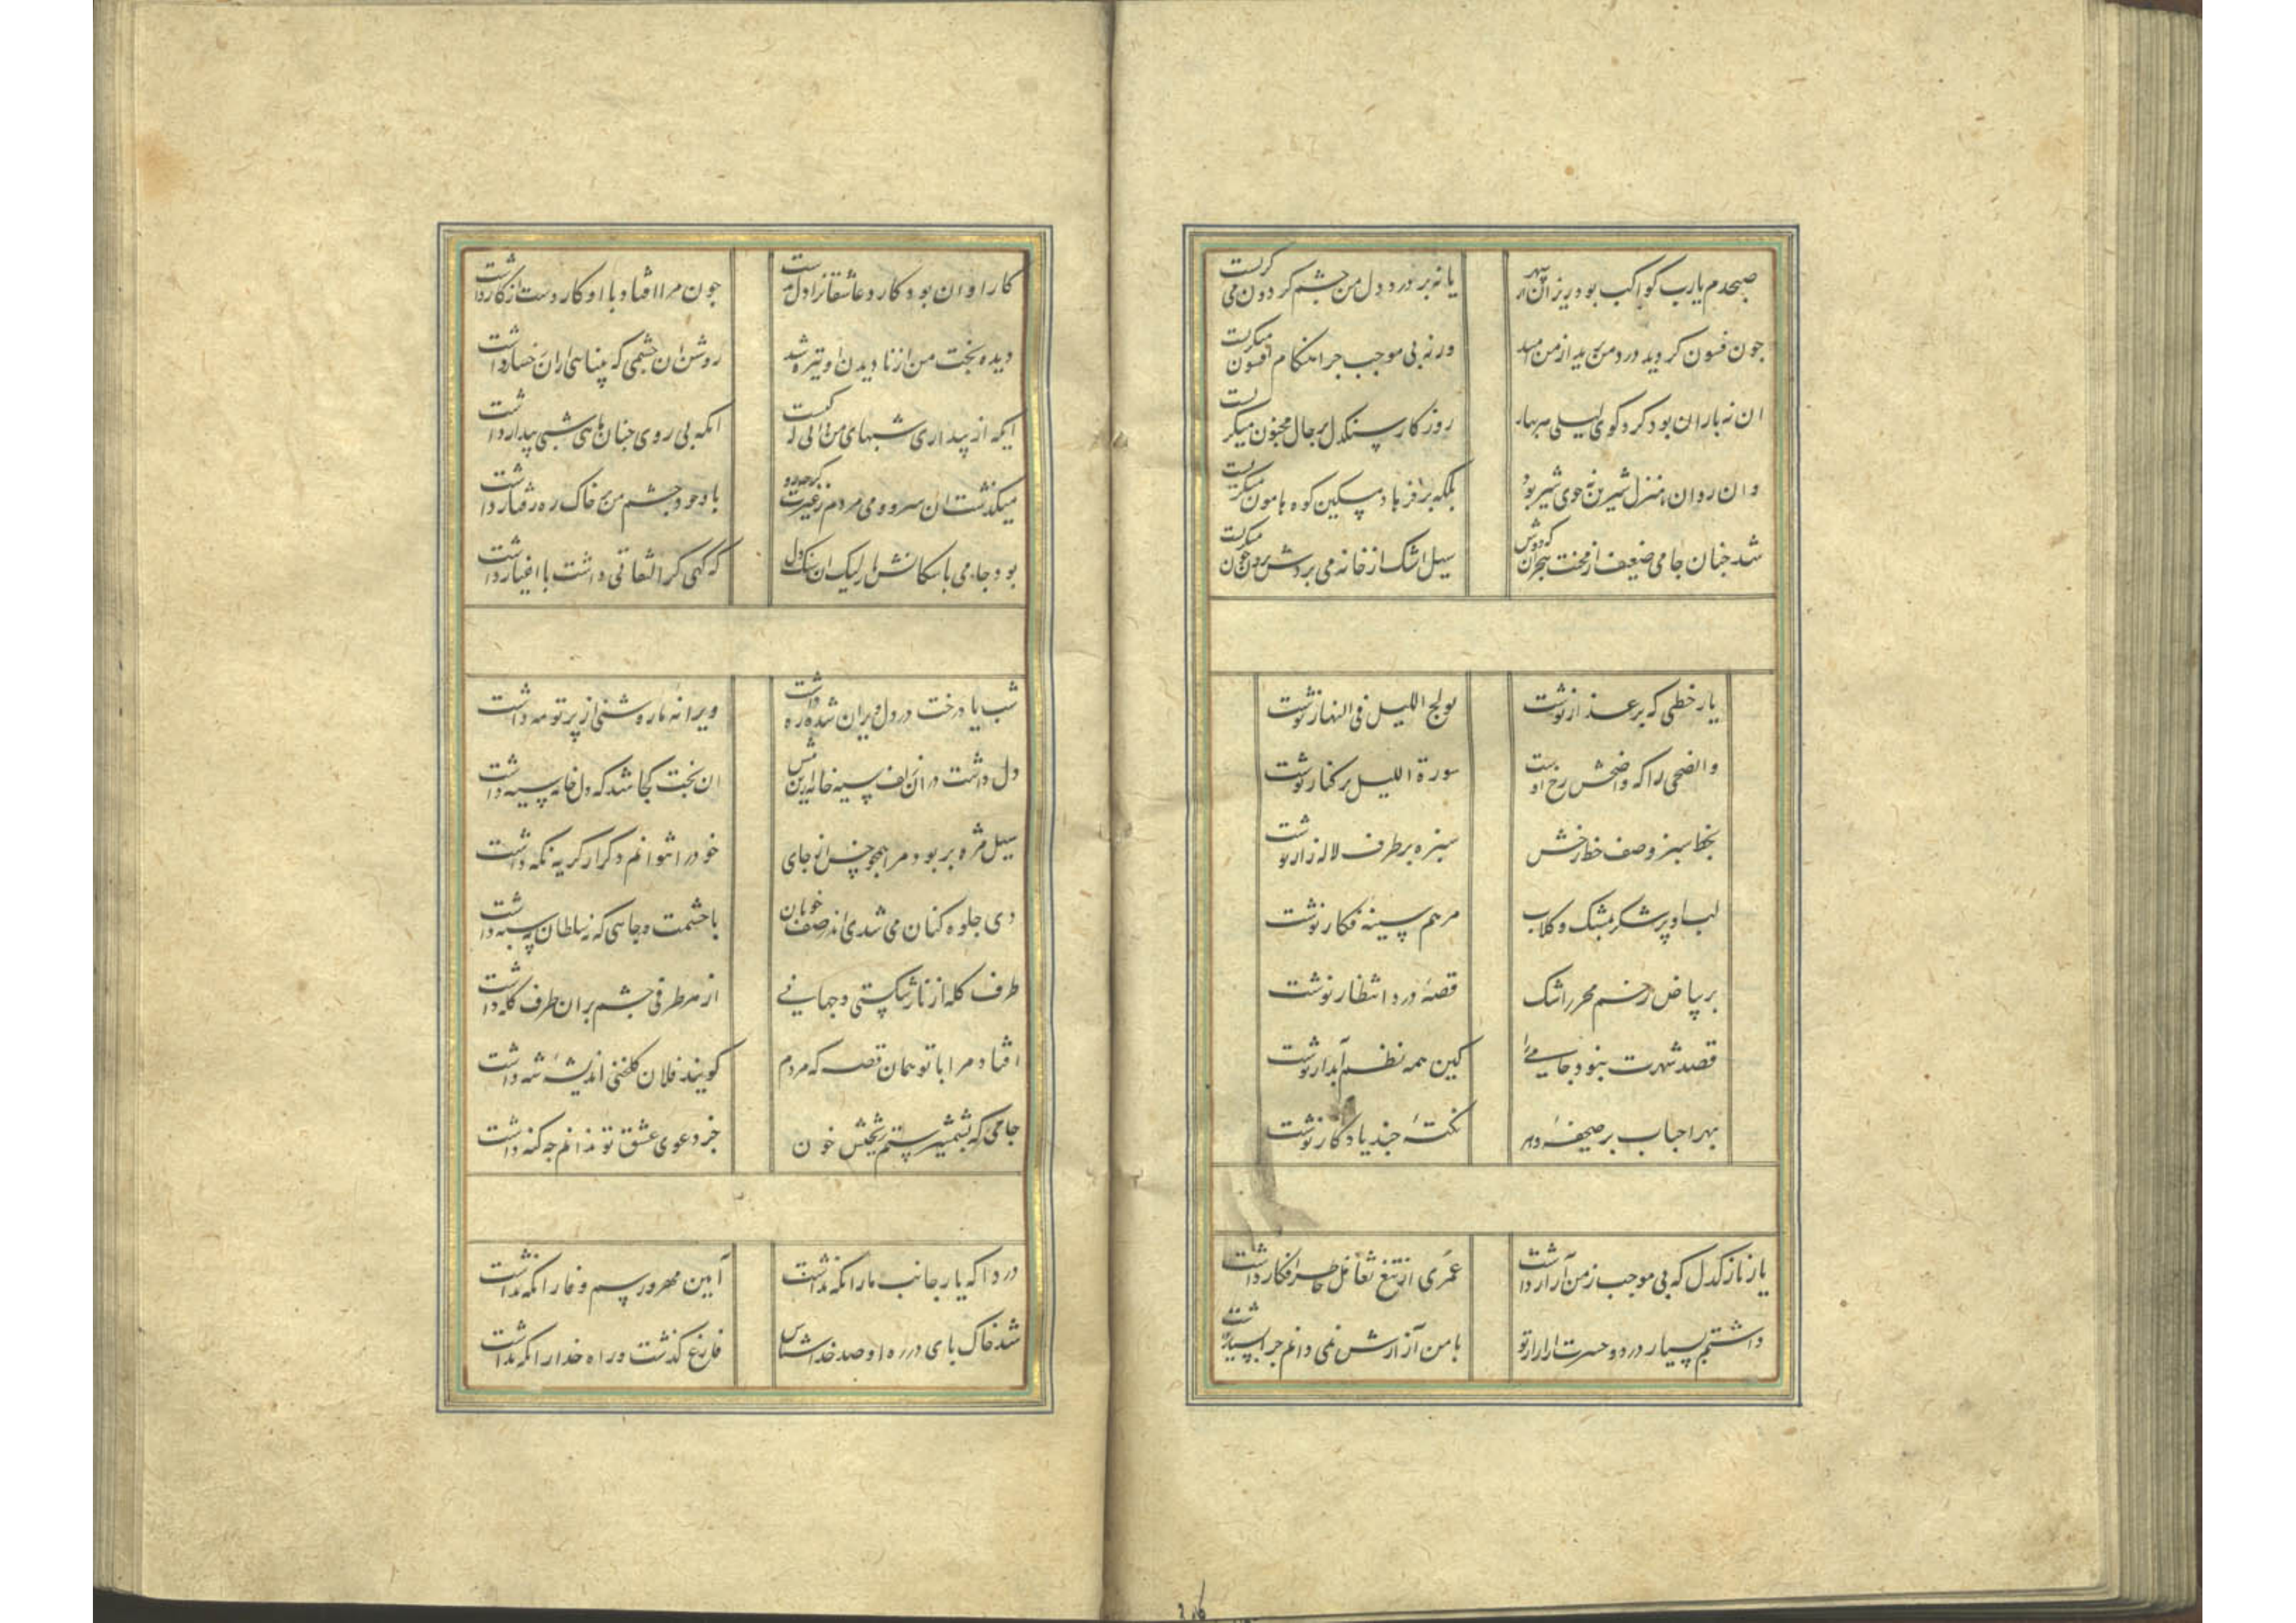 صبحدم یارب کواکب بود ریزان از سپهر
یا نه بر درد دل من چشم گردون می گریست
چون فسون گردید درد من پدید از من امید
ورنه بی موجب چرا هنگام افسون میگریست
ان نه باران بود گرد کوی لیلی هر بهار
روزگار سنکدل بر حال مجنون میگریست
وان روان تا منزل شیرین نه جوی شیر بود
بلکه بر فرهاد مسکین کوه و هامون میگریست
شد چنان جامی ضعیف از محنت هجران که دوش
سیل اشک از خانه می بردش برون چون میگریست
یار خطی که بر عذار نوشت
یولج اللیل فی النهار نوشت
والضحی را که واضحش رخ اوست
سورة اللیل بر کنار نوشت
بخط سبز وصف خط رخش
سبزه بر طرف لاله زار نوشت
لب او پر شکر بمشک و کلاب
مرهم سینه فکار نوشت
بر بیاض رخم محرر اشک
قصهٔ درد انتظار نوشت
قصد شهرت نبود جامی را
کین همه نظم آبدار نوشت
بهر احباب بر صحیفهٔ دهر
نکتهٔ چند یادکار نوشت
یار نازکدل که بی موجب ز من آزار داشت
عمری از تیغ تغافل خاطرم افکار داشت
داشتم بسیار درد و حسرت از آزار او
با من آزارش نمی دانم چرا بسیار داشت
کار او ان بود کارد عاشقانرا دل بدست
چون مرا افتاد با او کار دست از کار داشت
دیده بخت من از نادیدن او تیره شد
روشن ان چشمی که بینایی از ان رخسار داشت
ایکه از بیداری شبهای من اکه نیست
انکه بی روی چنان ماهی شبی بیدار داشت
میکذشت ان سرو و می مردم ز غیرت کز چه رو
با وجود چشم من بر خاک ره رفتار داشت
بود جامی با سکانش یار لیک ان سنکدل
که کهی کر التفاتی داشت با اغیار داشت
شب یاد رخت در دل ویران شده ره داشت
ویرانهٔ ما روشنی از پرتو مه داشت
دل داشت در ان زلف سیه خانه ازین پیش
ان بخت کجا شد که دل خانه سیه داشت
سیل مژه بربود مرا همچو خس از جای
خود را نتوانم دکر از کریه نکه داشت
دی جلوه کنان می شدی اندر صف خوبان
با حشمت و جاهی که نه سلطان سپه داشت
طرف کله از ناز شکستی و جهانی
از هر طرفی چشم بر ان طرف کله داشت
افتاد مرا با تو همان قصه که مردم
کویند فلان کلخنی اندیشهٔ شه داشت
جامی که بشمشیر ستم ریختیش خون
جز دعوی عشق تو ندانم چه کنه داشت
دردا که یار جانب ما را نکه نداشت
آیین مهر و رسم وفا را نکه نداشت
شد خاک پای در ره او صد خداشناس
فارغ کذشت و راه خدا را نکه نداشت